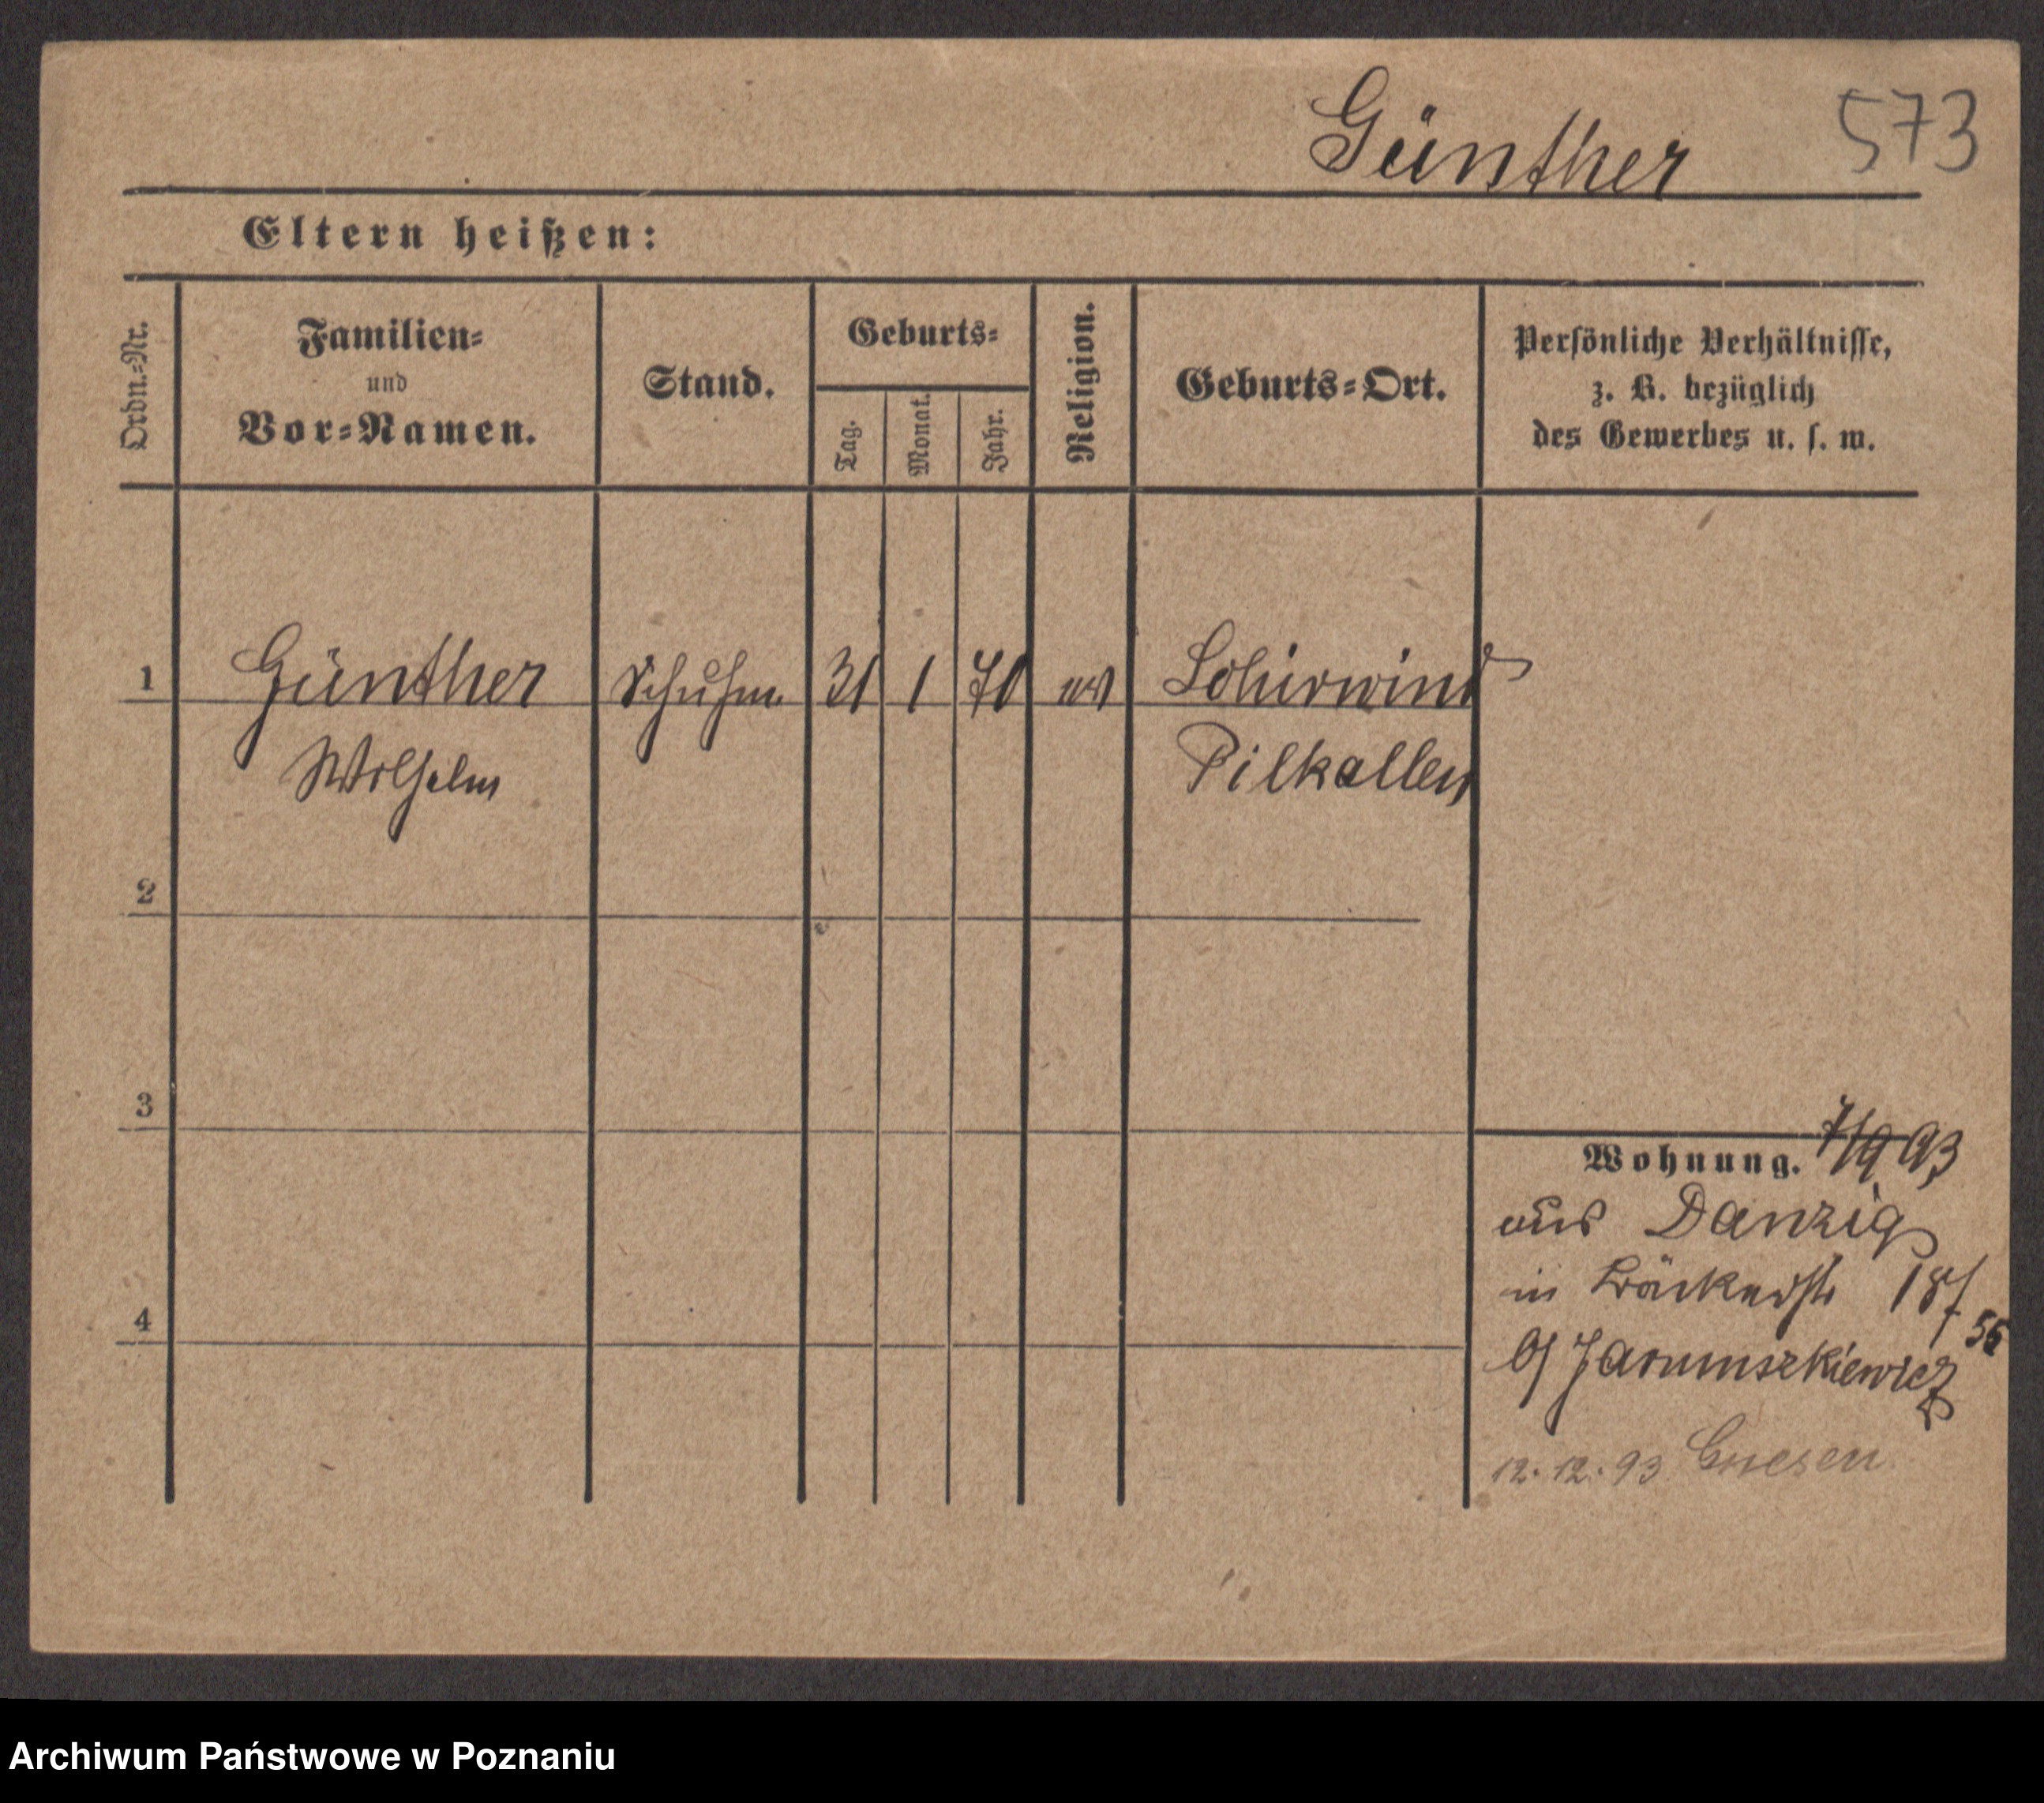 Günther 573
Eltern heißen:
Ordn.-Nr.
Familien-
und
Vor-Namen.
Stand.
Geburts-
Tag.
Monat.
Jahr.
Religion.
Geburts-Ort.
Persönliche Verhältnisse,
z. B. bezüglich
des Gewerbes u. s. w.
1 Günther Schuhm. 31 1 70 ev Schirwind
Wilhelm Pilkallen
2
3
Wohnung. 7/9 93
aus Danzig
in Bäckerstr
4
b/ Jarumszkiewicz
12.12.93 Gnesen
Archiwum Państwowe w Poznaniu